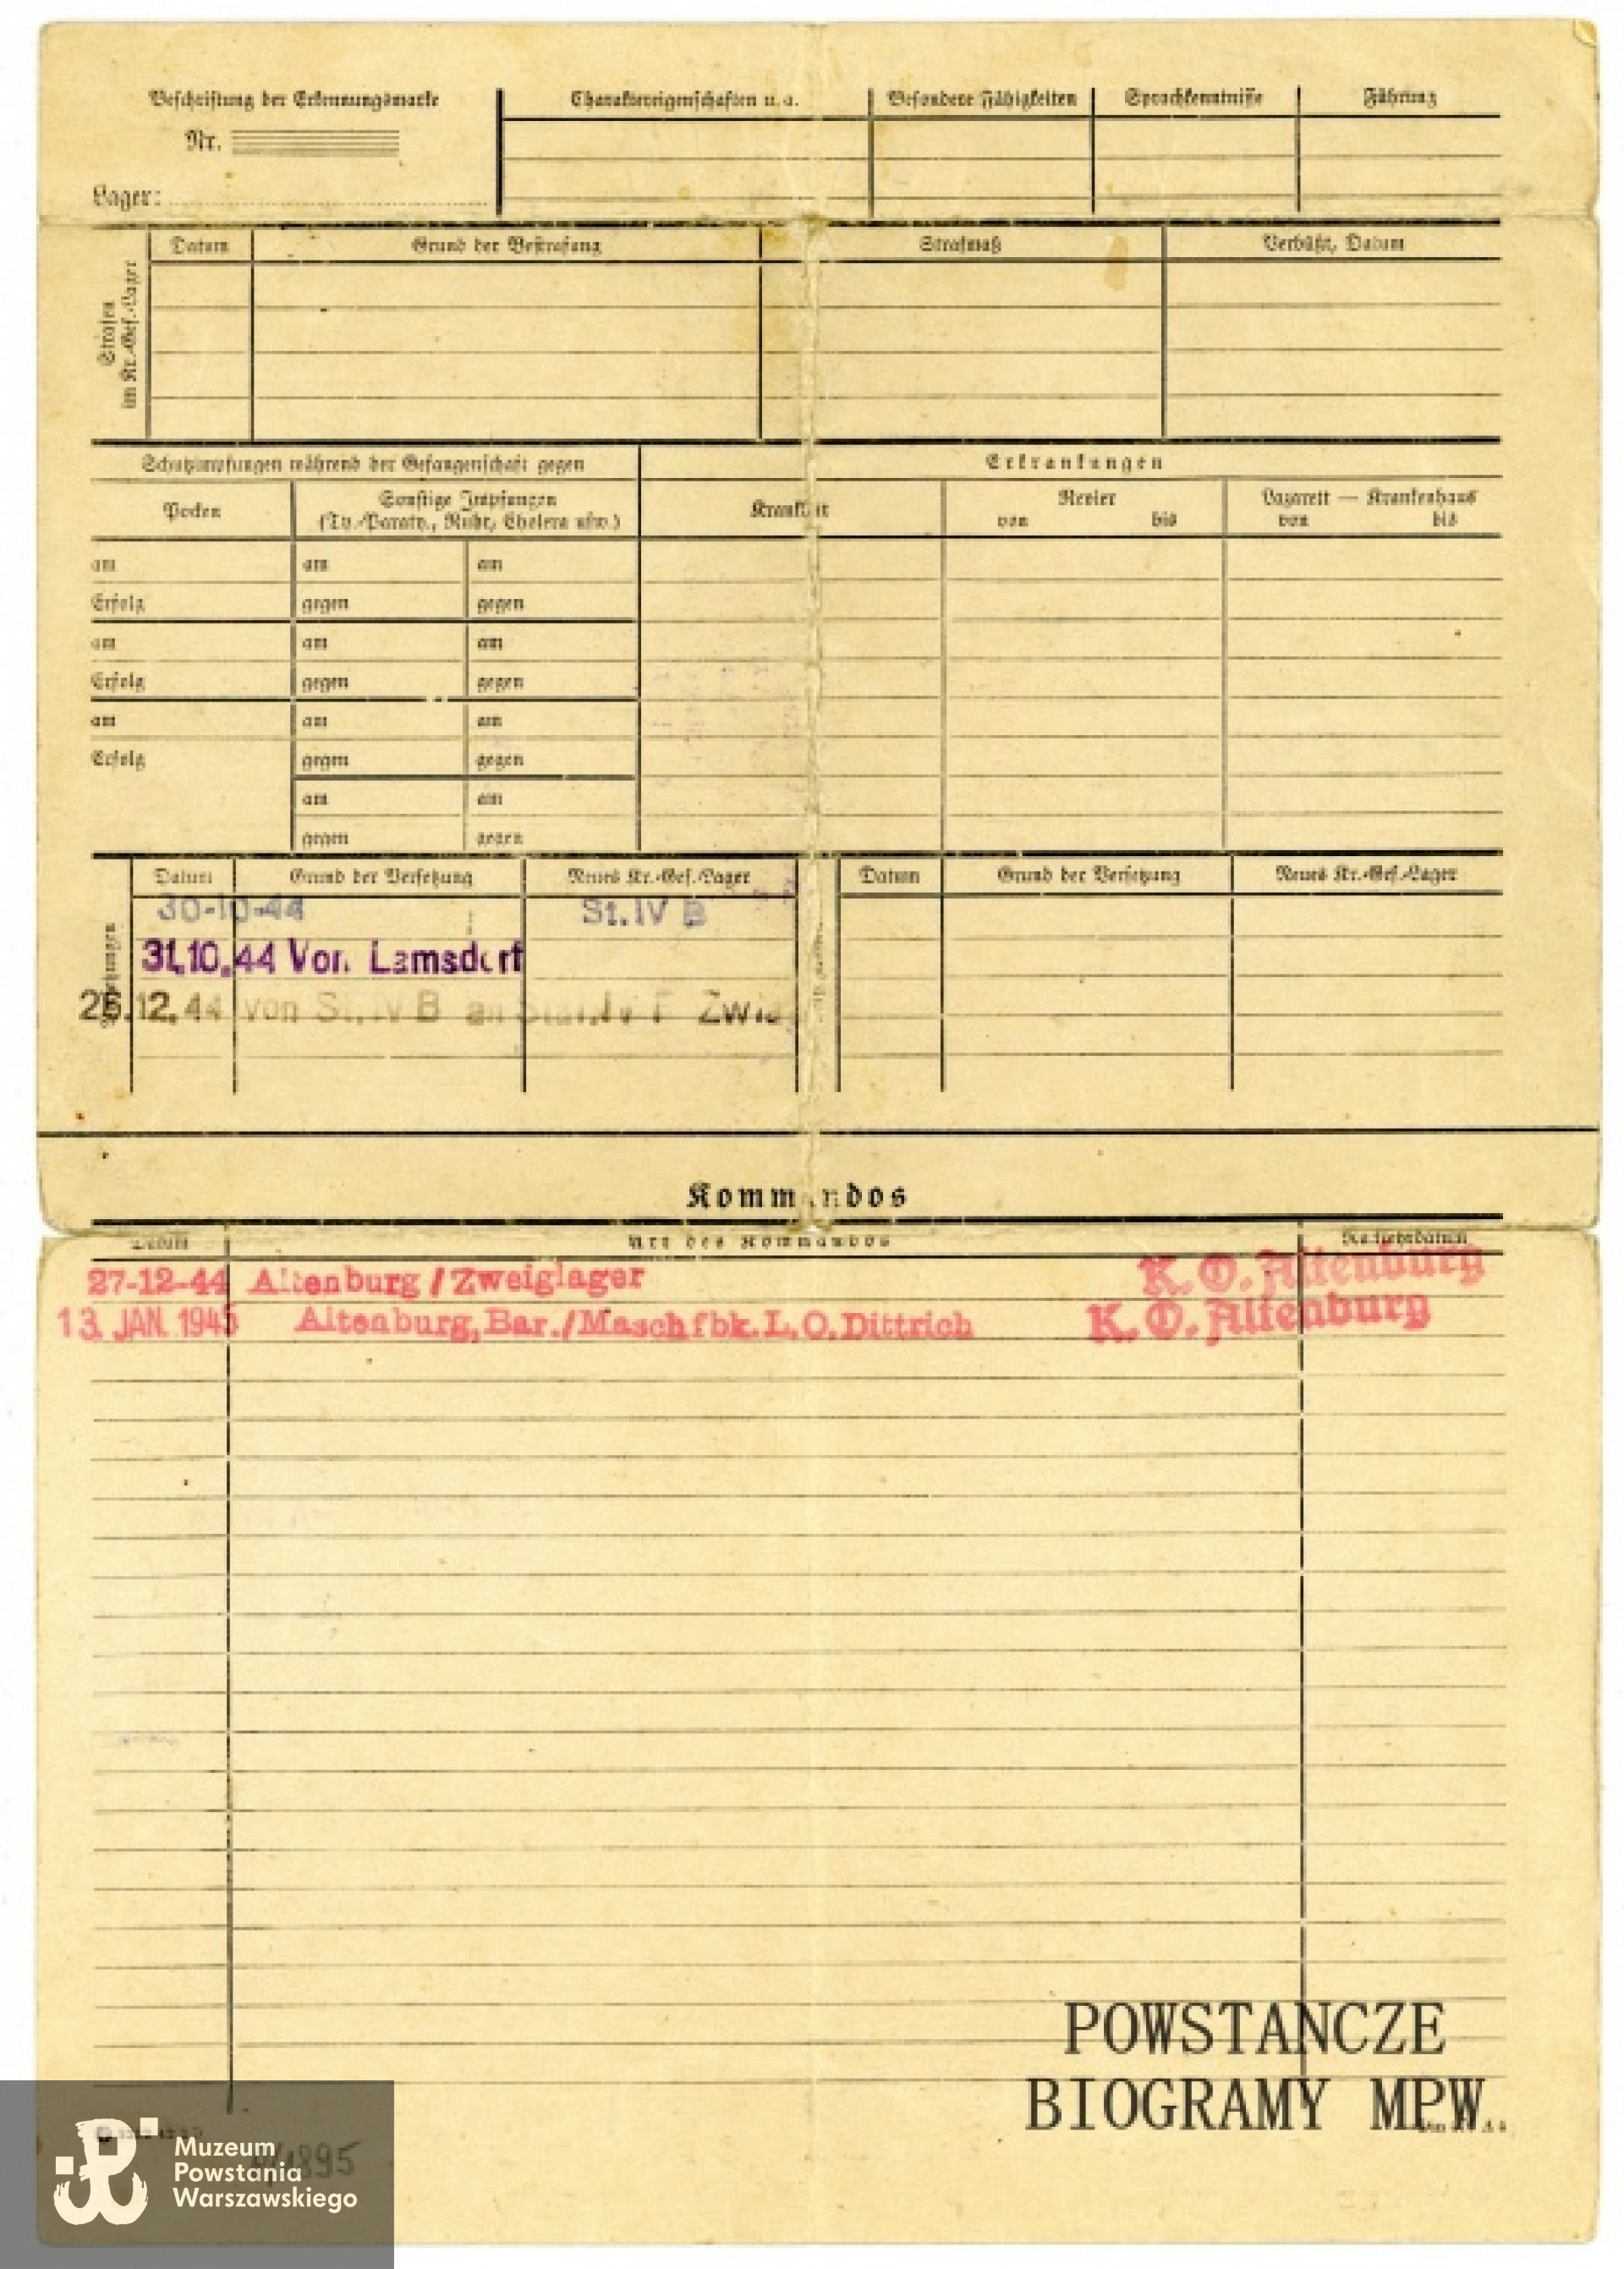 Beschriftung der Erkennungsmarke
Nr.
Lager:
Charaktereigenschaften u. a.
Besondere Fähigkeiten
Sprachkenntnisse
Führung
Strafen
im Kr.-Gef.-Lager
Datum
Grund der Bestrafung
Strafmaß
Verbüßt, Datum
Schutzimpfungen während der Gefangenschaft gegen
Erkrankungen
Pocken
Sonstige Impfungen
(Ty.-Paraty., Ruhr, Cholera usw.)
Krankheit
Revier
von bis
Lazarett — Krankenhaus
von bis
am am am
Erfolg gegen gegen
am am am
Erfolg gegen gegen
am am am
Erfolg gegen gegen
am am
gegen gegen
Datum Grund der Versetzung Neues Kr.-Gef.-Lager Datum Grund der Versetzung Neues Kr.-Gef.-Lager
30-10-44 St. IV B
31.10.44 Von Lamsdorf
von St. IV B an IV F
Kommandos
Datum Art des Kommandos Rückkehrdatum
27-12-44 Altenburg / Zweiglager K.O. Altenburg
13. JAN. 1945 Altenburg, Bar./Maschfbk. L. O. Dittrich K.O. Altenburg
POWSTANCZE
BIOGRAMY MPW
Muzeum
Powstania
Warszawskiego